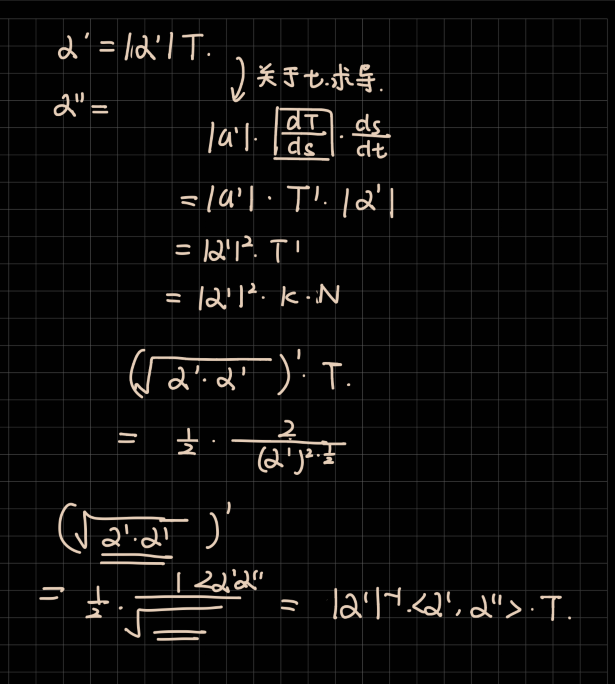 α' = |α'| T.
关于t.求导.
α'' =
|α'| · dT/ds · ds/dt
= |α'| · T' · |α'|
= |α'|² · T'
= |α'|² · k · N
(√(α'·α'))' · T.
= 1/2 · 2/(α')^(2·1/2)
(√(α'·α'))'
= 1/2 · 1<2α'α''/√ = |α'|⁻¹·<α', α''>·T.